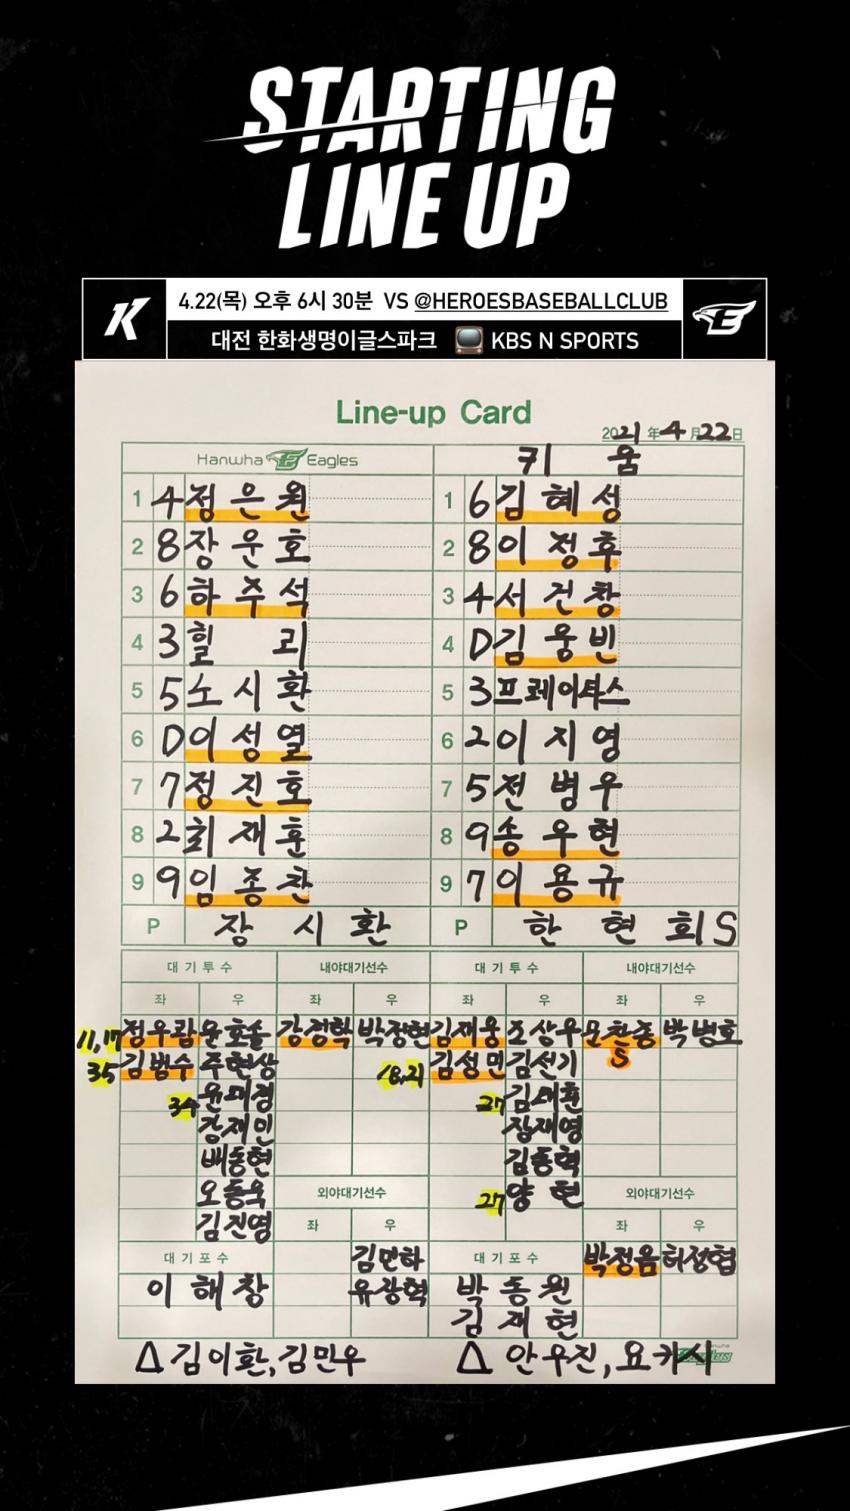 STARTING
LINE UP
4.22(목) 오후 6시 30분 VS @HEROESBASEBALLCLUB
대전 한화생명이글스파크 KBS N SPORTS
Line-up Card
2021 年 4 月 22 日
Hanwha Eagles 키움
1 4 정은원 1 6 김혜성
2 8 장운호 2 8 이정후
3 6 하주석 3 4 서건창
4 3 힐리 4 D 김웅빈
5 5 노시환 5 3 프레이타스
6 D 이성열 6 2 이지영
7 7 정진호 7 5 전병우
8 2 최재훈 8 9 송우현
9 9 임종찬 9 7 이용규
P 장시환 P 한현희 S
대기투수 내야대기선수 대기투수 내야대기선수
좌 우 좌 우 좌 우 좌 우
11,17 정우람 윤호솔 강경학 박정현 김재웅 조상우 문찬종 박병호
35 김범수 주현상 18,21 김성민 김선기 S
34 윤대경 27 김태훈
강재민 장재영
배동현 김동혁
오동욱 외야대기선수 27 양현 외야대기선수
김진영 좌 우 좌 우
대기포수 김민하 대기포수 박정음 허정협
이해창 유장혁 박동원
김재현
△ 김이환, 김민우 △ 안우진, 요키시